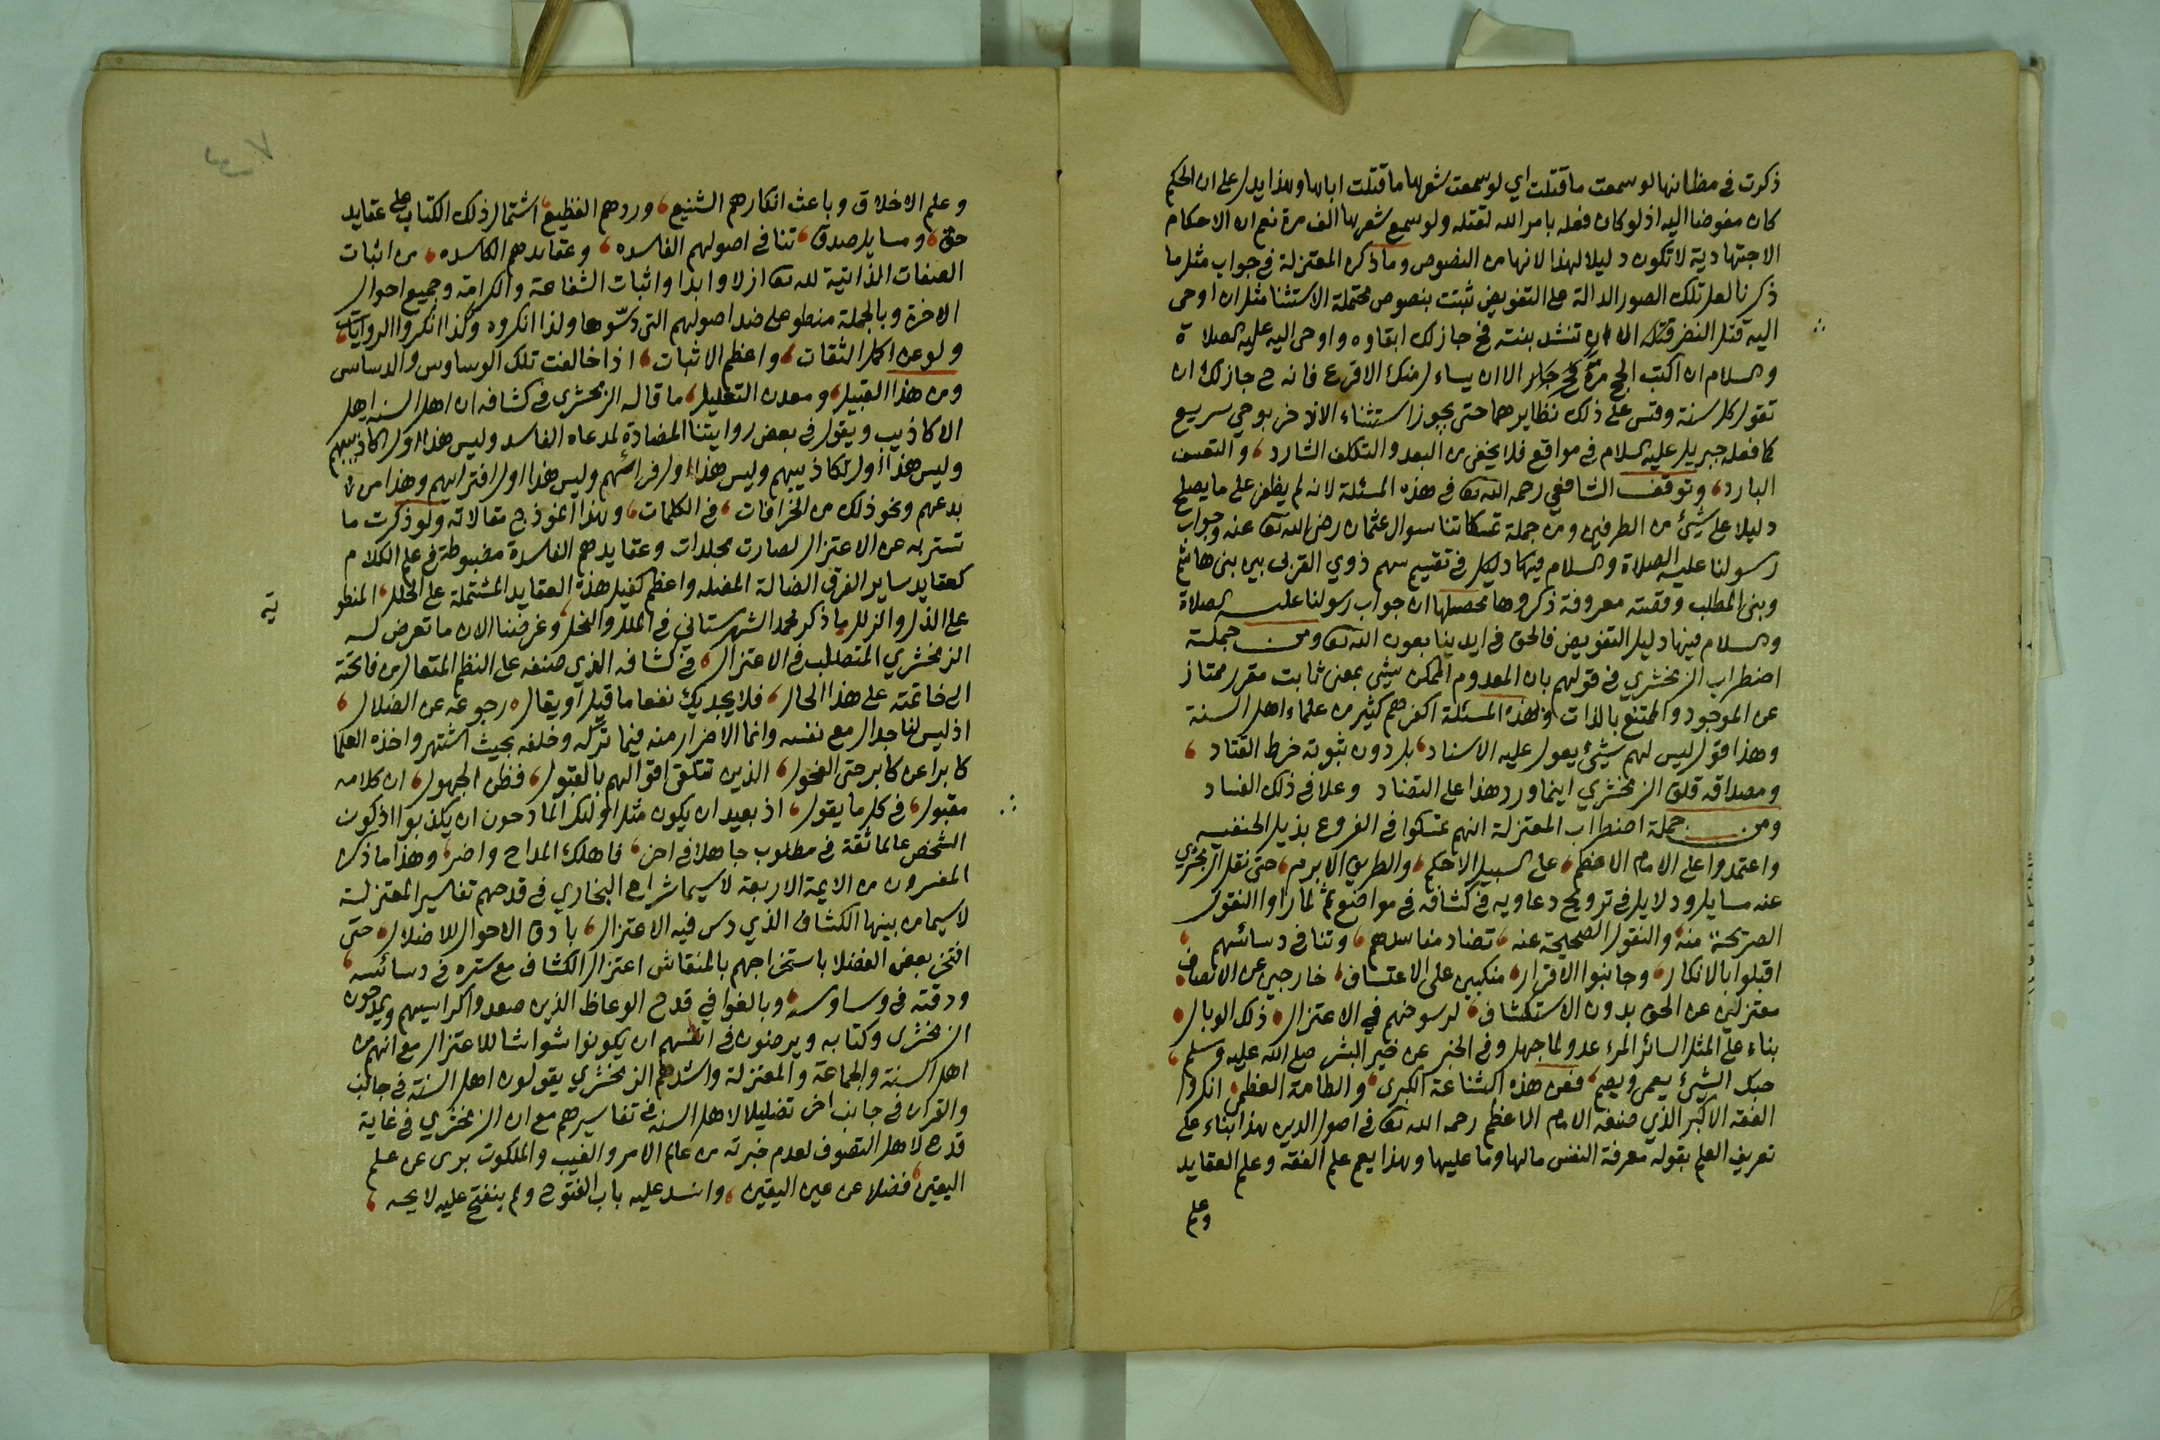 ذكرت في مظانها لو سمعت ما قتلت اي لو سمعت شعرها ما قتلت اباها وهذا يدل على ان الحكم
كان مفوضا اليه اذ لو كان فعله بامر الله لقتله ولو سمع شعرها الف مرة نعم ان الاحكام
الاجتهادية لا تكون دليلا لهذا لانها من النصوص وما ذكره المعتزلة في جواب مثل ما
ذكرنا لعل تلك الصور الدالة على التفويض ثبتت بنصوص محتملة الاستثنا مثل ان اوحى
اليه قتل النضر قتله الا ان تنشد بنته فح جاز لك ابقاوه واوحى اليه عليه الصلاة
والسلام ان اكتب الحج مرة الا ان يساءل منك الاقرع فانه ح جاز لك ان
تقول كل سنة وقس على ذلك نظايرهما حتى يجوز استثناء الاذخر بوحي سريع
كما فعله جبريل عليه السلام في مواقع فلا يخفى من البعد والتكلف الشارد والتعسف
البارد وتوقف الشافعي رحمه الله تعا في هذه المسئلة لانه لم يظفر على ما يصلح
دليلا على شيئ من الطرفين ومن جملة تمسكاتنا سوال عثمان رضي الله تعا عنه وجواب
رسولنا عليه الصلاة والسلام فيها دليل في تقسيم سهم ذوي القربى بين بنى هاشم
وبنى المطلب وقصته معروفة ذكروها محصلها ان جواب رسولنا عليه الصلاة
والسلام فيها دليل التفويض فالحق في ايدينا بعون الله تعا ومن جملة
اضطراب الزمخشري في قولهم بان المعدوم الممكن شيئ بمعنى ثابت مقرر ممتاز
عن الموجود والممتنع بالذات ولهذه المسئلة اكفرهم كثير من علماء اهل السنة
وهذا قول ليس لهم شيئ يعول عليه الاسناد بل دون ثبوته خرط القتاد
ومصداقه قلق الزمخشري اينما ورد هذا على التضاد وعلا في ذلك الفساد
ومن جملة اضطراب المعتزلة انهم تمسكوا في الفروع بذيل الحنفيه
واعتمدوا على الامام الاعظم على السبيل الاحكم والطريق الابرم حتى نقل الزمخشري
عنه مسايل ودلايل في ترويج دعاويه في كشافه في مواضع ثم لما راوا النقول
الصريحة منه والنقول الصحيحة عنه تضاد مفاسدهم وتنافي دسائسهم
اقبلوا بالانكار وجانبوا الاقرار منكبين على الاعتساف خارجين عن الانصاف
معتزلين عن الحق بدون الاستكشاف لرسوخهم في الاعتزال ذلك الوبال
بناء على المثل السائر المرء عدو لما جهل وفي الخبر عن خير البشر صلى الله عليه وسلم
حبك الشيئ يعمى ويصم فعن هذه الشناعة الكبرى والطامة العظمى انكروا
الفقه الاكبر الذي صنفه الامام الاعظم رحمه الله تعا في اصول الدين بهذا بناء على
تعريف العلم بقوله معرفة النفس مالها وما عليها وبهذا يعم علم الفقه وعلم العقايد
وعلم
وعلم الاخلاق وباعث انكارهم الشنيع وردهم الفظيع اشتمال ذلك الكتاب على عقايد
حق ومسايل صدق تنافي اصولهم الفاسده وعقايدهم الكاسده من اثبات
الصفات الذاتية لله تعا ازلا وابدا واثبات الشفاعة والكرامة وجميع احوال
الاخرة وبالجملة منطو على ضد اصولهم التى دسّوها ولذا انكروه وكذا انكروا الروايات
ولو عن اكمل الثقات واعظم الاثبات اذا خالفت تلك الوساوس والدساس
ومن هذا القبيل ومعدن التعليل ما قال الزمخشري في كشافه ان اهل السنه اهل
الاكاذيب ويقول في بعض روايتنا المضادة لمدعاه الفاسد وليس هذا اول اكاذيبهم
وليس هذا اول تكاذيبهم وليس هذا اول فرائهم وليس هذا اول افترائهم وهذا من
بدعهم ونحو ذلك من الخرافات في الكلمات وهذا انموذج مقالاته ولو ذكرت ما
تستر به عن الاعتزال لصارت مجلدات وعقايدهم الفاسدة مضبوطة في علم الكلام
كعقايد ساير الفرق الضالة المضله واعظم كفيل هذه العقايد المشتملة على الخلل المنطو
ية
على الذل والزلل ما ذكر محمد الشهرستاني في الملل والنحل وغرضنا الان ما تعرض له
الزمخشري المتصلب في الاعتزال في كشافه الذي صنفه على النظم المتعال من فاتحة
الى خاتمته على هذا الحال فلا يجديك نفعا ما قيل او يقال رجوعه عن الضلال
اذ ليس لنا جدال مع نفسه وانما الاضرار منه فيما تركه وخلفه بحيث اشتهر واخذه العلما
كابرا عن كابر حتى الفحول الذين تتلقى اقوالهم بالقبول فظن الجهول ان كلامه
مقبول في كل ما يقول اذ بعيد ان يكون مثل اولئك المادحون ان يكذبوا اذ كون
الشخص عالما ثقة في مطلوب جاهلا في اخر فاهلك المداح واضر وهذا ما ذكره
المفسرون من الايمة الاربعة لا سيما شراح البخاري في قدحهم تفاسير المعتزلة
لا سيما من بينها الكشاف الذي دس فيه الاعتزال بادق الاحوال للاضلال حتى
افتخر بعض الفضلا باستخراجهم بالمنقاش اعتزال الكشاف مع ستره في دسائسه
ودقته في وساوسه وبالغوا في قدح الوعاظ الذين صعدوا كراسيهم ويمدحون
الزمخشرى وكتابه ويرضون في انفسهم ان يكونوا شواشا للاعتزال مع انهم من
اهل السنة والجماعة والمعتزلة واشدهم الزمخشري يقولون اهل السنة في جانب
والقران في جانب اخر تضليلا لاهل السنه في تفاسيرهم مع ان الزمخشري في غاية
قدح لاهل التصوف لعدم خبرته من عالم الامر والغيب والملكوت برى عن علم
اليقين فضلا عن عين اليقين وانسد عليه باب الفتوح ولم ينفتح عليه لا يحه